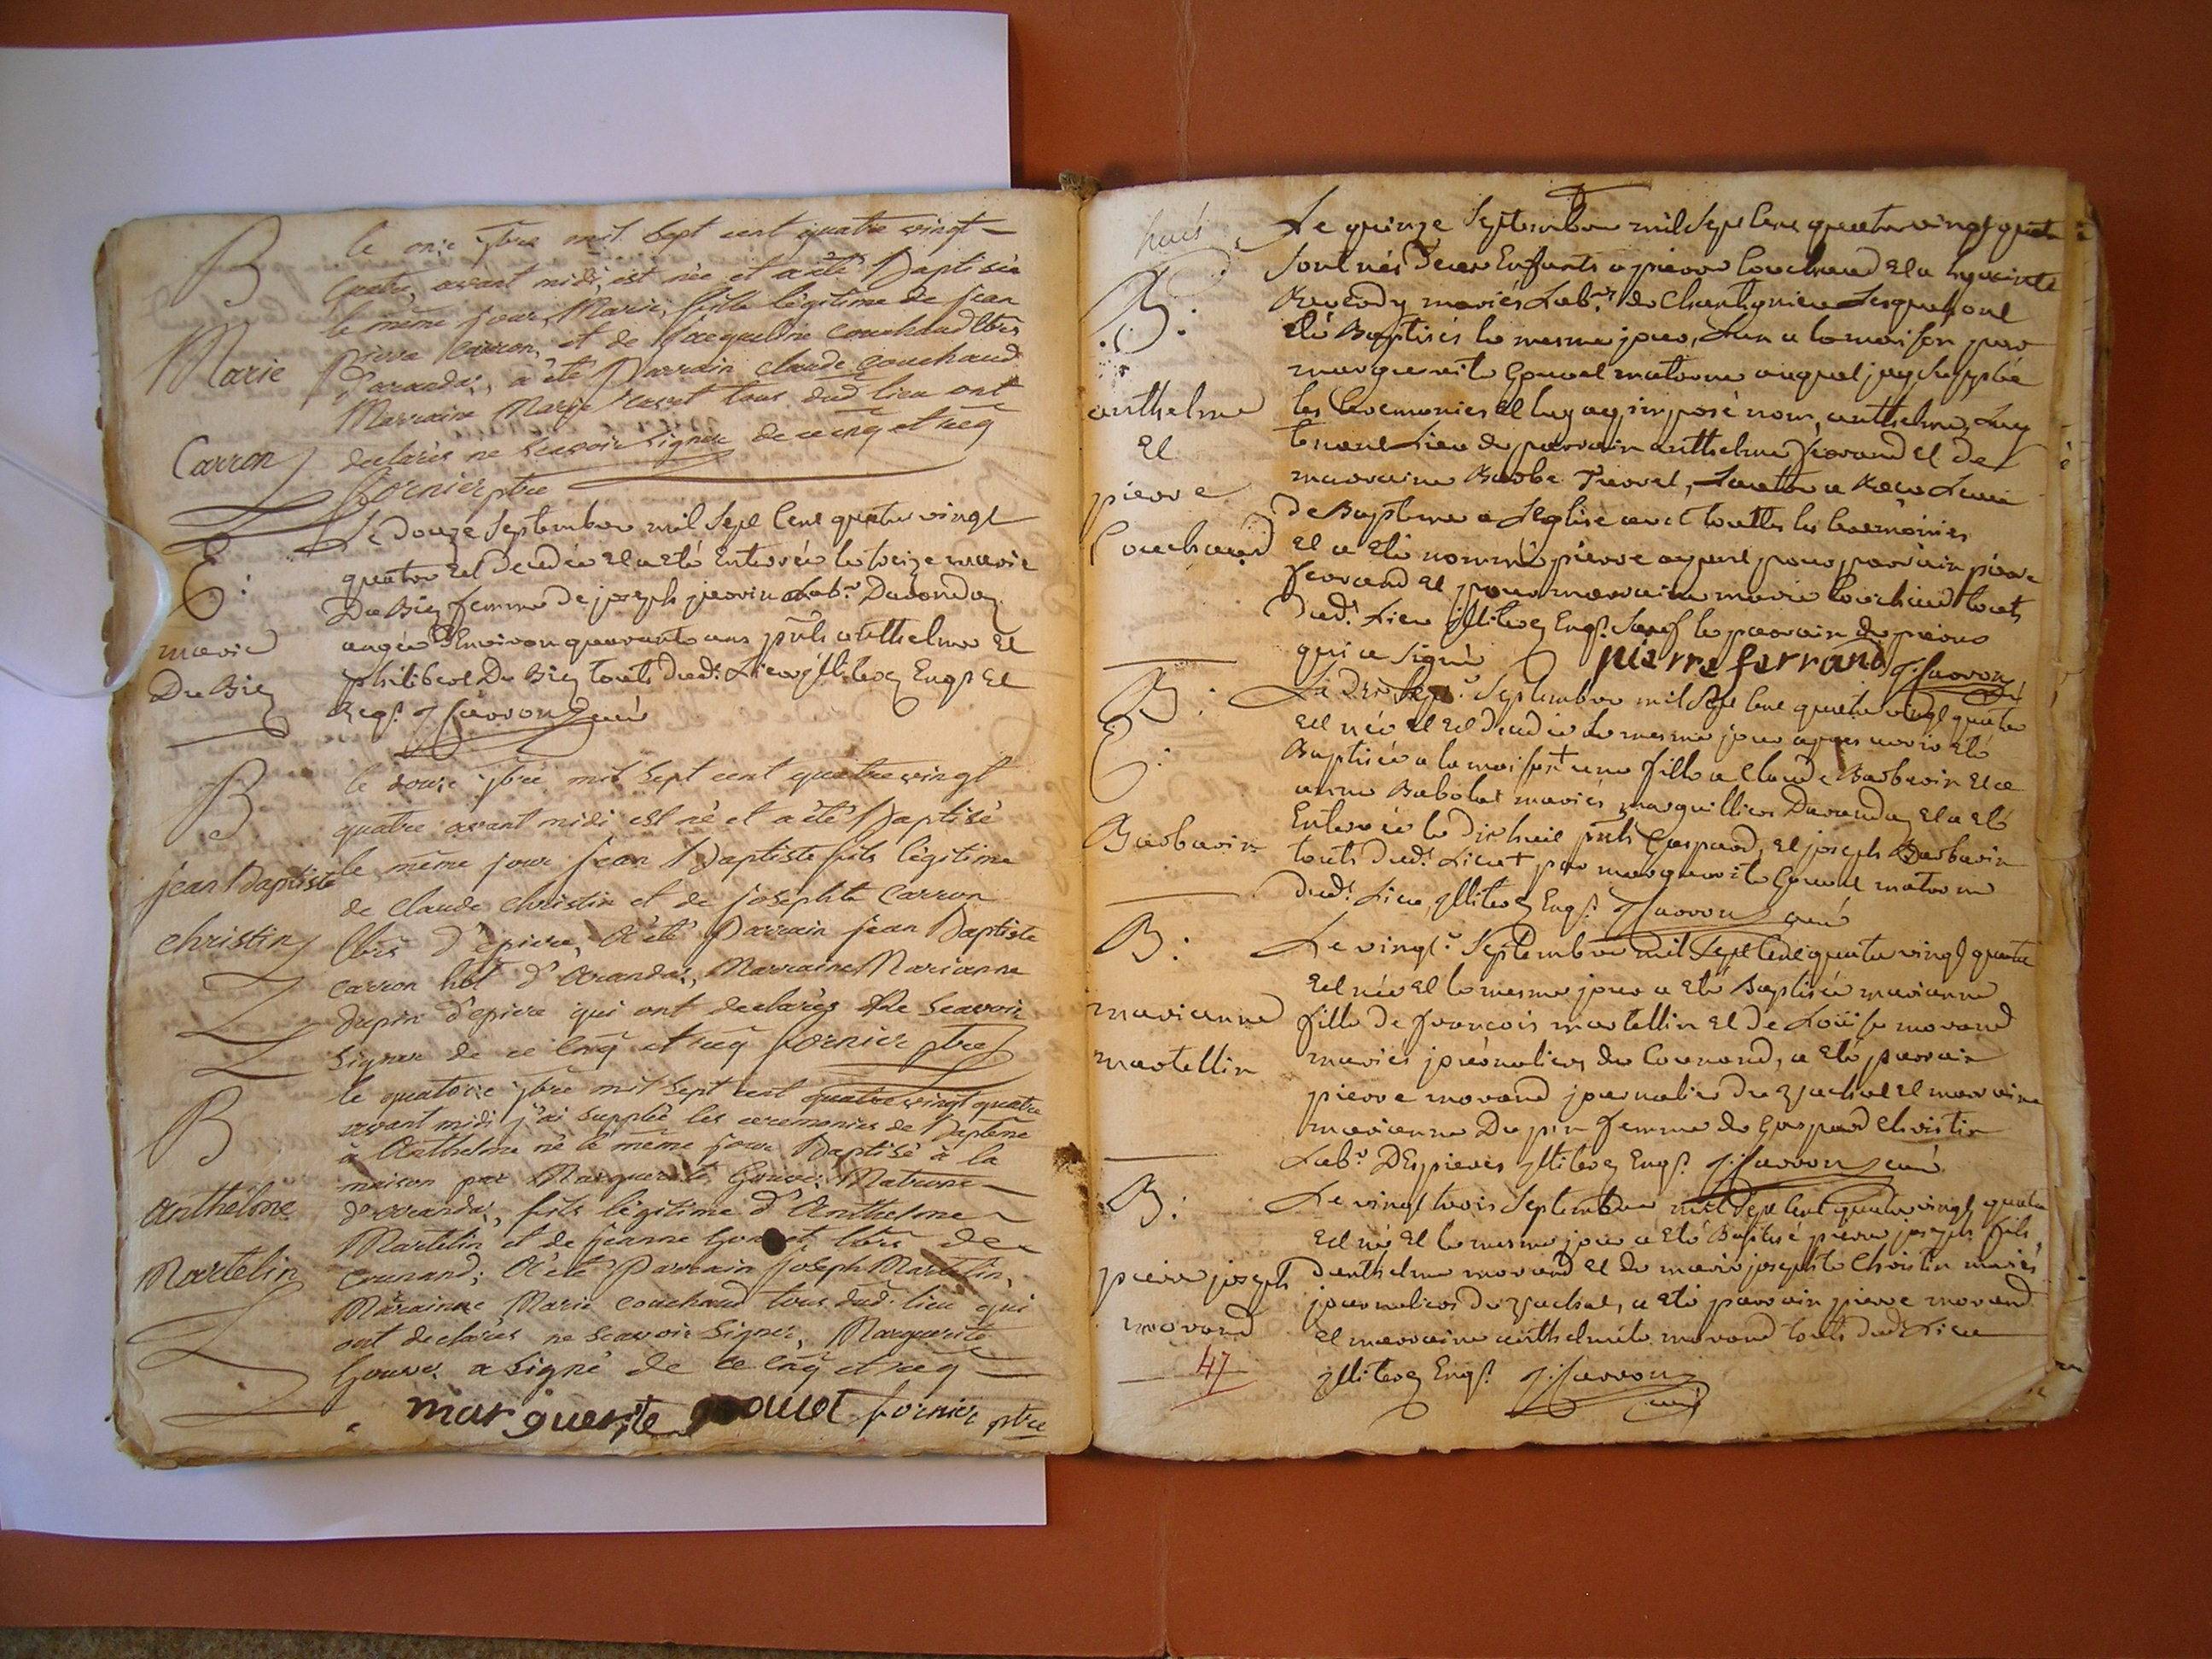 B
le onze 7bre mil sept cent quatre vingt
quatre, avant midi, est née et a été Baptisée
le même jour, Marie, fille légitime de jean
Marie
Pierre Carron, et de jacqueline couchaud lbrs
d'arandas, a été Parrain claude couchaud
Marraine Marie tous dud. lieu ont
Carron
declarés ne scavoir signer de ce enq et req
fornier ptre
Le douze Septembre mil Sept Cent quatre vingt
E:
quatre Est decedée Et a Eté Enterrée le treize marie
Du Biez femme de joseph Labr. Darandaz
marie
augée d'Environ quarante ans pnts anthelme Et
Du Biez
philibert Du Biez touts dud. Lieu jlliterez Enqs. Et
Reqs. J: Carron curé
B
le douze 7bre mil sept cent quatre vingt
quatre avant midi est né et a été Baptisé
jean Baptiste
le même jour jean Baptiste fils légitime
de claude christin et de josephte carron
christin
lbrs d'epierre, A été Parrain jean Baptiste
carron hbt d'Arandas, Marraine Marianne
dupin d'epierre qui ont declarés Ne scavoir
signer de ce enq et req fornier ptre
B
le quatorze 7bre mil sept cent quatre vingt quatre
avant midi j'ai supplée les ceremonies de Baptême
à Anthelme né le même jour Baptisé à la
maison par Marguerite Gouvet Matrone
Anthelme
d'arandas, fils légitime d'Anthelme
Martelin et de jeanne lbrs de
Martelin
Counand; A été Parrain joseph Martelin,
Maraine Marie couchaud tous dud. lieu qui
ont declarés ne scavoir signer, Marguerite
Gouvet a signé de ce enq et req
marguerite gouvet fornier ptre
Le quinze Septembre mil Sept Cent quatre vingt quatre
B:
Sont nés deux Enfants a pierre Couchaud Et a hyacinte
mariés Labrs. de Chantignieu Lesquels ont
Eté Baptisés le mesme jour, Lun a la maison par
marguerite Gouvet matrone auquel jay Supplée
anthelme
les Ceremonies Et luy ay imposé nom, anthelme, Luy
Et
tenant Lieu de parrain anthelme ferrand Et de
pierre
marraine Barbe, Lautre a Reçu Leau
Couchaud
de Baptesme a Leglise avec touttes les Ceremonies
Et a Eté nommé pierre ayant pour parrain pierre
ferrand Et pour marraine marie Couchaud touts
dud. Lieu jlliterez Enqs. Sauf le parrain de pierre
qui a signé pierre ferrand J: Carron curé
B:
Le Septembre mil Sept Cent quatre vingt quatre
E:
Est née Et Est decedée Le mesme jour apres avoir Eté
Baptisée a la maison + une fille a Claude Barbarin Et a
anne Babolat mariés marguilliers Darandaz Et a Eté
Barbarin
Enterrée le dix huit pnts Gaspard, Et joseph Barbarin
touts dud. Lieu + par marguerite Gouvet matrone
dud. Lieu, jlliterez Enqs. J: Carron curé
B:
Le vingt. Septembre mil Sept Cent quatre vingt quatre
Est née Et le mesme jour a Eté Baptisée marianne
marianne
fille de françois martellin Et de Loüise morand
martellin
mariés journaliers de Counand, a Eté parrain
pierre morand journalier du Et marraine
marianne Dupin femme de Gaspard Christin
Labr. DEspierres jlliterez Enqs. J: Carron curé
B:
Le vingt trois Septembre mil Sept Cent quatre vingt quatre
Est né Et le mesme jour a Eté Baptisé pierre joseph fils,
pierre joseph
danthelme morand Et de marie josephte Christin mariés
morand
journaliers du, a Eté parrain pierre morand
Et marraine anthelmite morand touts dud. Lieu
47
jlliterez Enqs. J: Carron curé